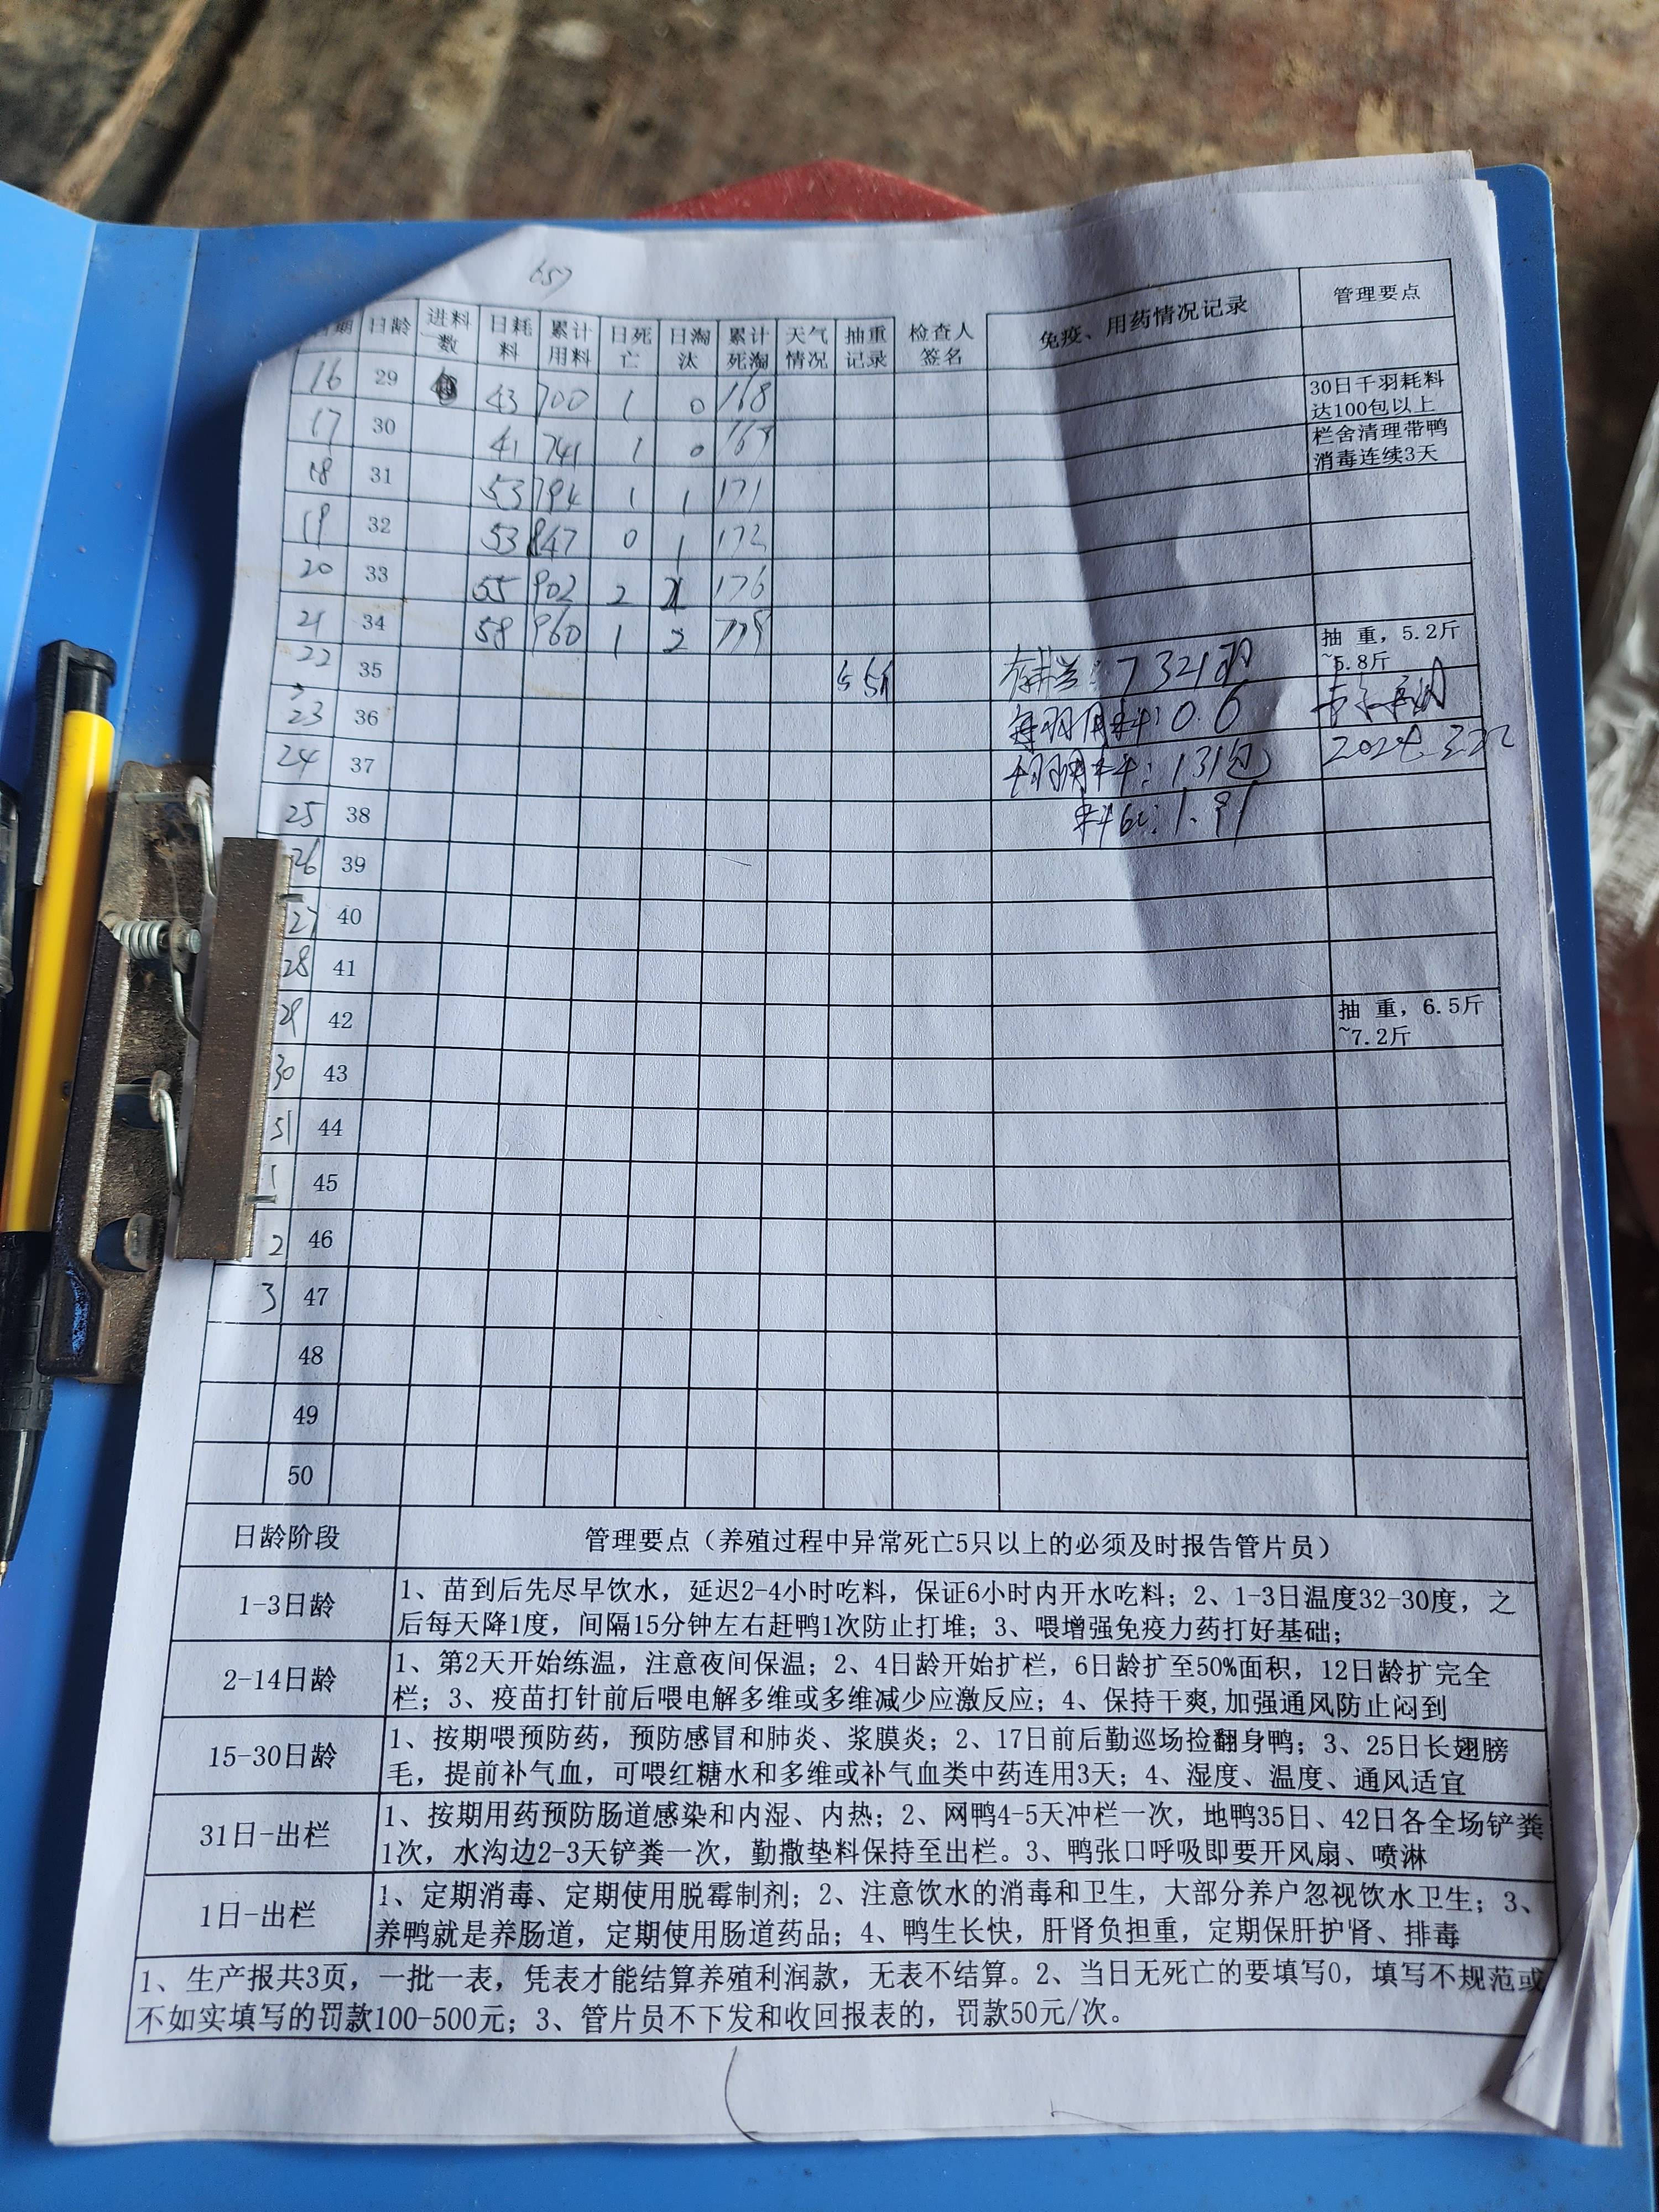 657
期 日龄 进料数 日耗料 累计用料 日死亡 日淘汰 累计死淘 天气情况 抽重记录 检查人签名 免疫、用药情况记录 管理要点
16 29 43 700 1 0 168 30日千羽耗料达100包以上
17 30 41 741 1 0 169 栏舍清理带鸭消毒连续3天
18 31 53 794 1 1 171
19 32 53 847 0 1 172
20 33 55 902 2 176
21 34 58 960 1 2 179
22 35 存栏 7321羽 抽 重，5.2斤~5.8斤
23 36 每羽用料：0.6
24 37 千羽用料：131包 2024.3.22
25 38 料比：1.91
26 39
27 40
28 41
29 42 抽 重，6.5斤~7.2斤
30 43
31 44
1 45
2 46
3 47
48
49
50
日龄阶段 管理要点（养殖过程中异常死亡5只以上的必须及时报告管片员）
1-3日龄 1、苗到后先尽早饮水，延迟2-4小时吃料，保证6小时内开水吃料；2、1-3日温度32-30度，之
后每天降1度，间隔15分钟左右赶鸭1次防止打堆；3、喂增强免疫力药打好基础；
2-14日龄 1、第2天开始练温，注意夜间保温；2、4日龄开始扩栏，6日龄扩至50%面积，12日龄扩完全
栏；3、疫苗打针前后喂电解多维或多维减少应激反应；4、保持干爽,加强通风防止闷到
15-30日龄 1、按期喂预防药，预防感冒和肺炎、浆膜炎；2、17日前后勤巡场捡翻身鸭；3、25日长翅膀
毛，提前补气血，可喂红糖水和多维或补气血类中药连用3天；4、湿度、温度、通风适宜
31日-出栏 1、按期用药预防肠道感染和内湿、内热；2、网鸭4-5天冲栏一次，地鸭35日、42日各全场铲粪
1次，水沟边2-3天铲粪一次，勤撒垫料保持至出栏。3、鸭张口呼吸即要开风扇、喷淋
1日-出栏 1、定期消毒、定期使用脱霉制剂；2、注意饮水的消毒和卫生，大部分养户忽视饮水卫生；3、
养鸭就是养肠道，定期使用肠道药品；4、鸭生长快，肝肾负担重，定期保肝护肾、排毒
1、生产报共3页，一批一表，凭表才能结算养殖利润款，无表不结算。2、当日无死亡的要填写0，填写不规范或
不如实填写的罚款100-500元；3、管片员不下发和收回报表的，罚款50元/次。